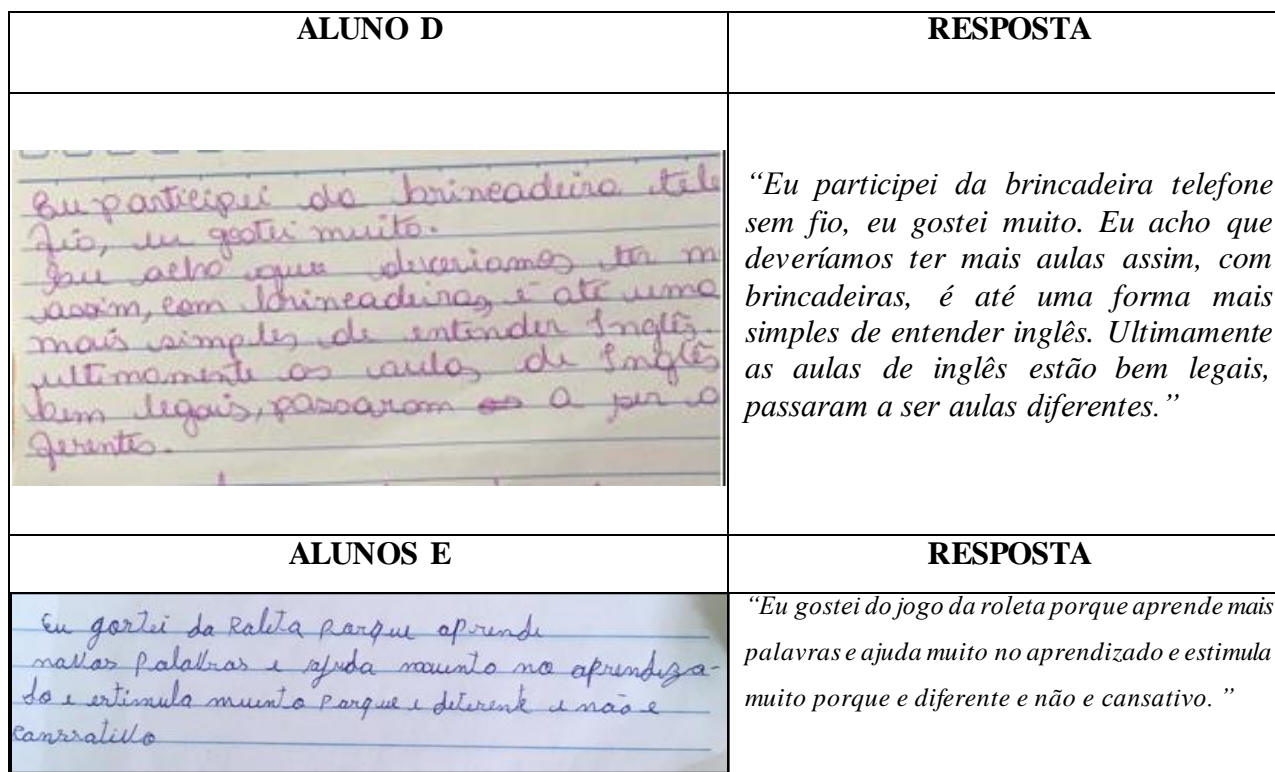 ALUNO D
RESPOSTA
Eu participei da brincadeira tele
fio, eu gostei muito.
Eu acho que deveriamos ter m
assim, com brincadeiras, é até uma
mais simples de entender Inglês.
ultimamente as aulas de Inglês
bem legais, passaram a ser a
ferentes.
"Eu participei da brincadeira telefone
sem fio, eu gostei muito. Eu acho que
deveríamos ter mais aulas assim, com
brincadeiras, é até uma forma mais
simples de entender inglês. Ultimamente
as aulas de inglês estão bem legais,
passaram a ser aulas diferentes."
ALUNOS E
RESPOSTA
Eu gostei da Roleta porque aprende
novas Palavras e ajuda muinto no aprendiza-
do e estimula muinto Porque e diferente e não e
canssativo
"Eu gostei do jogo da roleta porque aprende mais
palavras e ajuda muito no aprendizado e estimula
muito porque e diferente e não e cansativo."